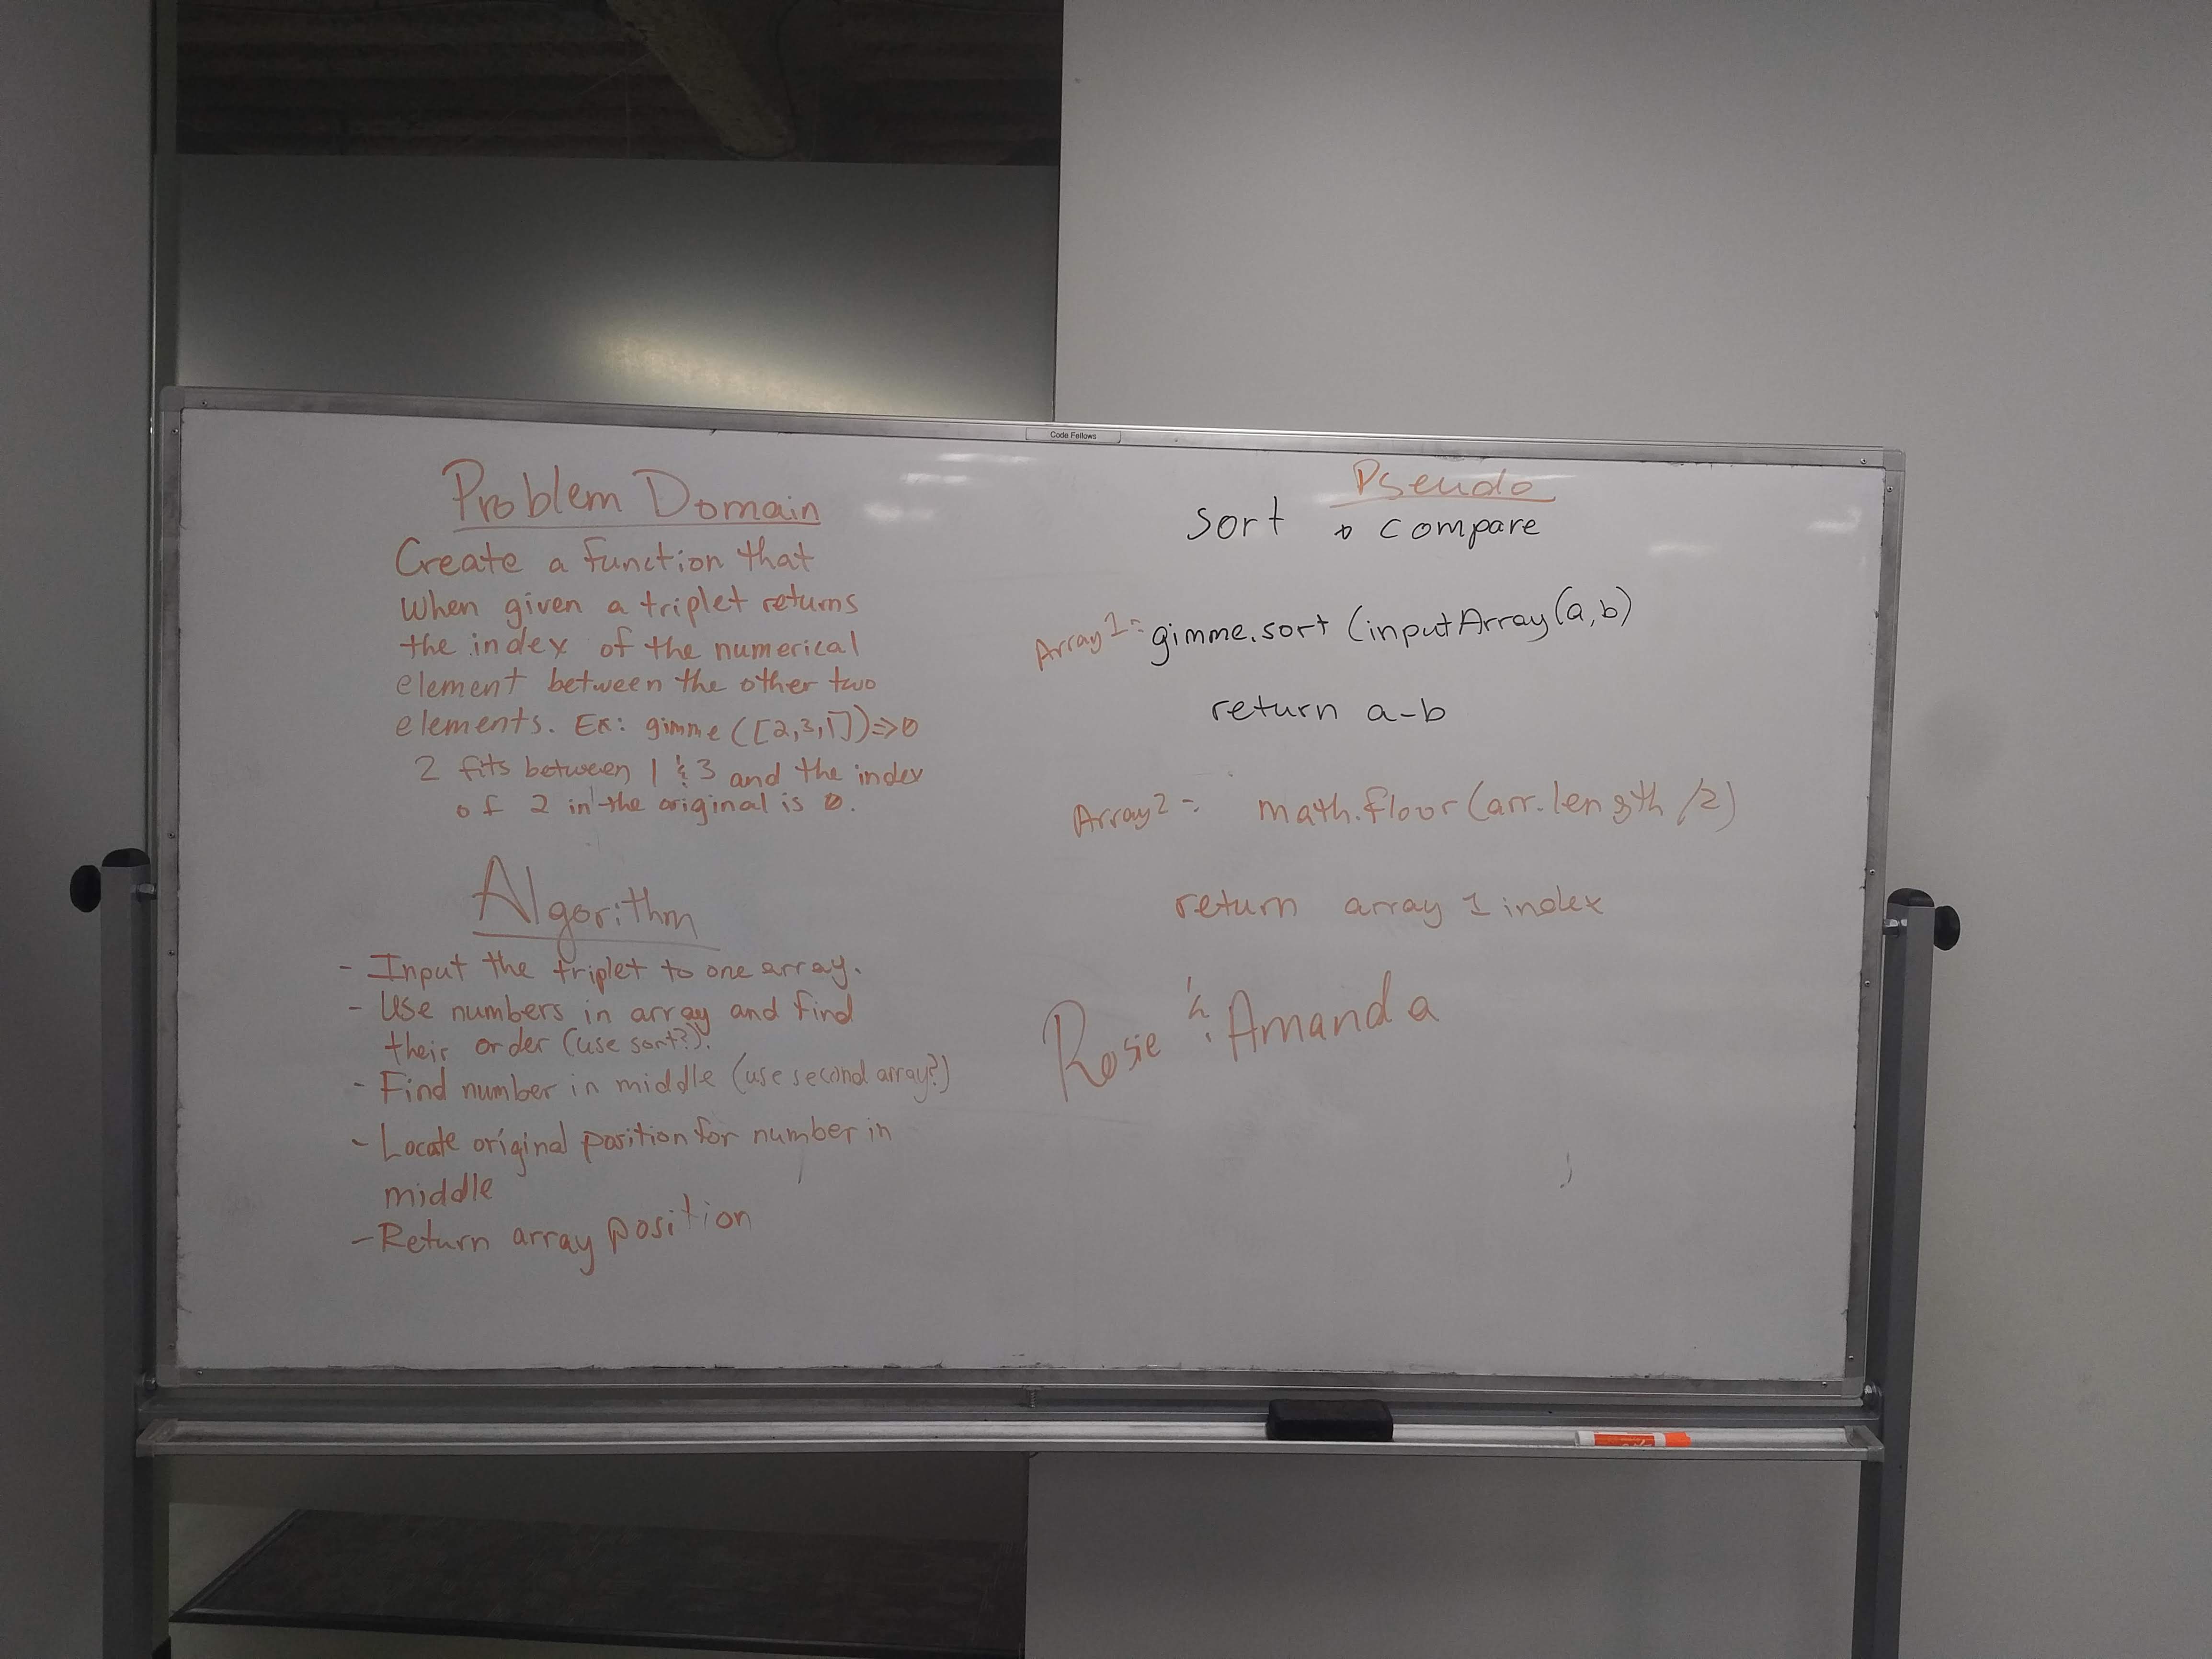 Code Fellows
Problem Domain
Create a function that
when given a triplet returns
the index of the numerical
element between the other two
elements. Ex: gimme([2,3,1])=>0
2 fits between 1 & 3 and the index
of 2 in the original is 0.
Algorithm
- Input the triplet to one array.
- Use numbers in array and find
their order (use sort?).
- Find number in middle (use second array?)
- Locate original position for number in
middle
- Return array position
Pseudo
sort & compare
Array1= gimme.sort (inputArray(a,b)
return a-b
Array2 = math.floor(arr.length /2)
return array 1 index
Rosie & Amanda